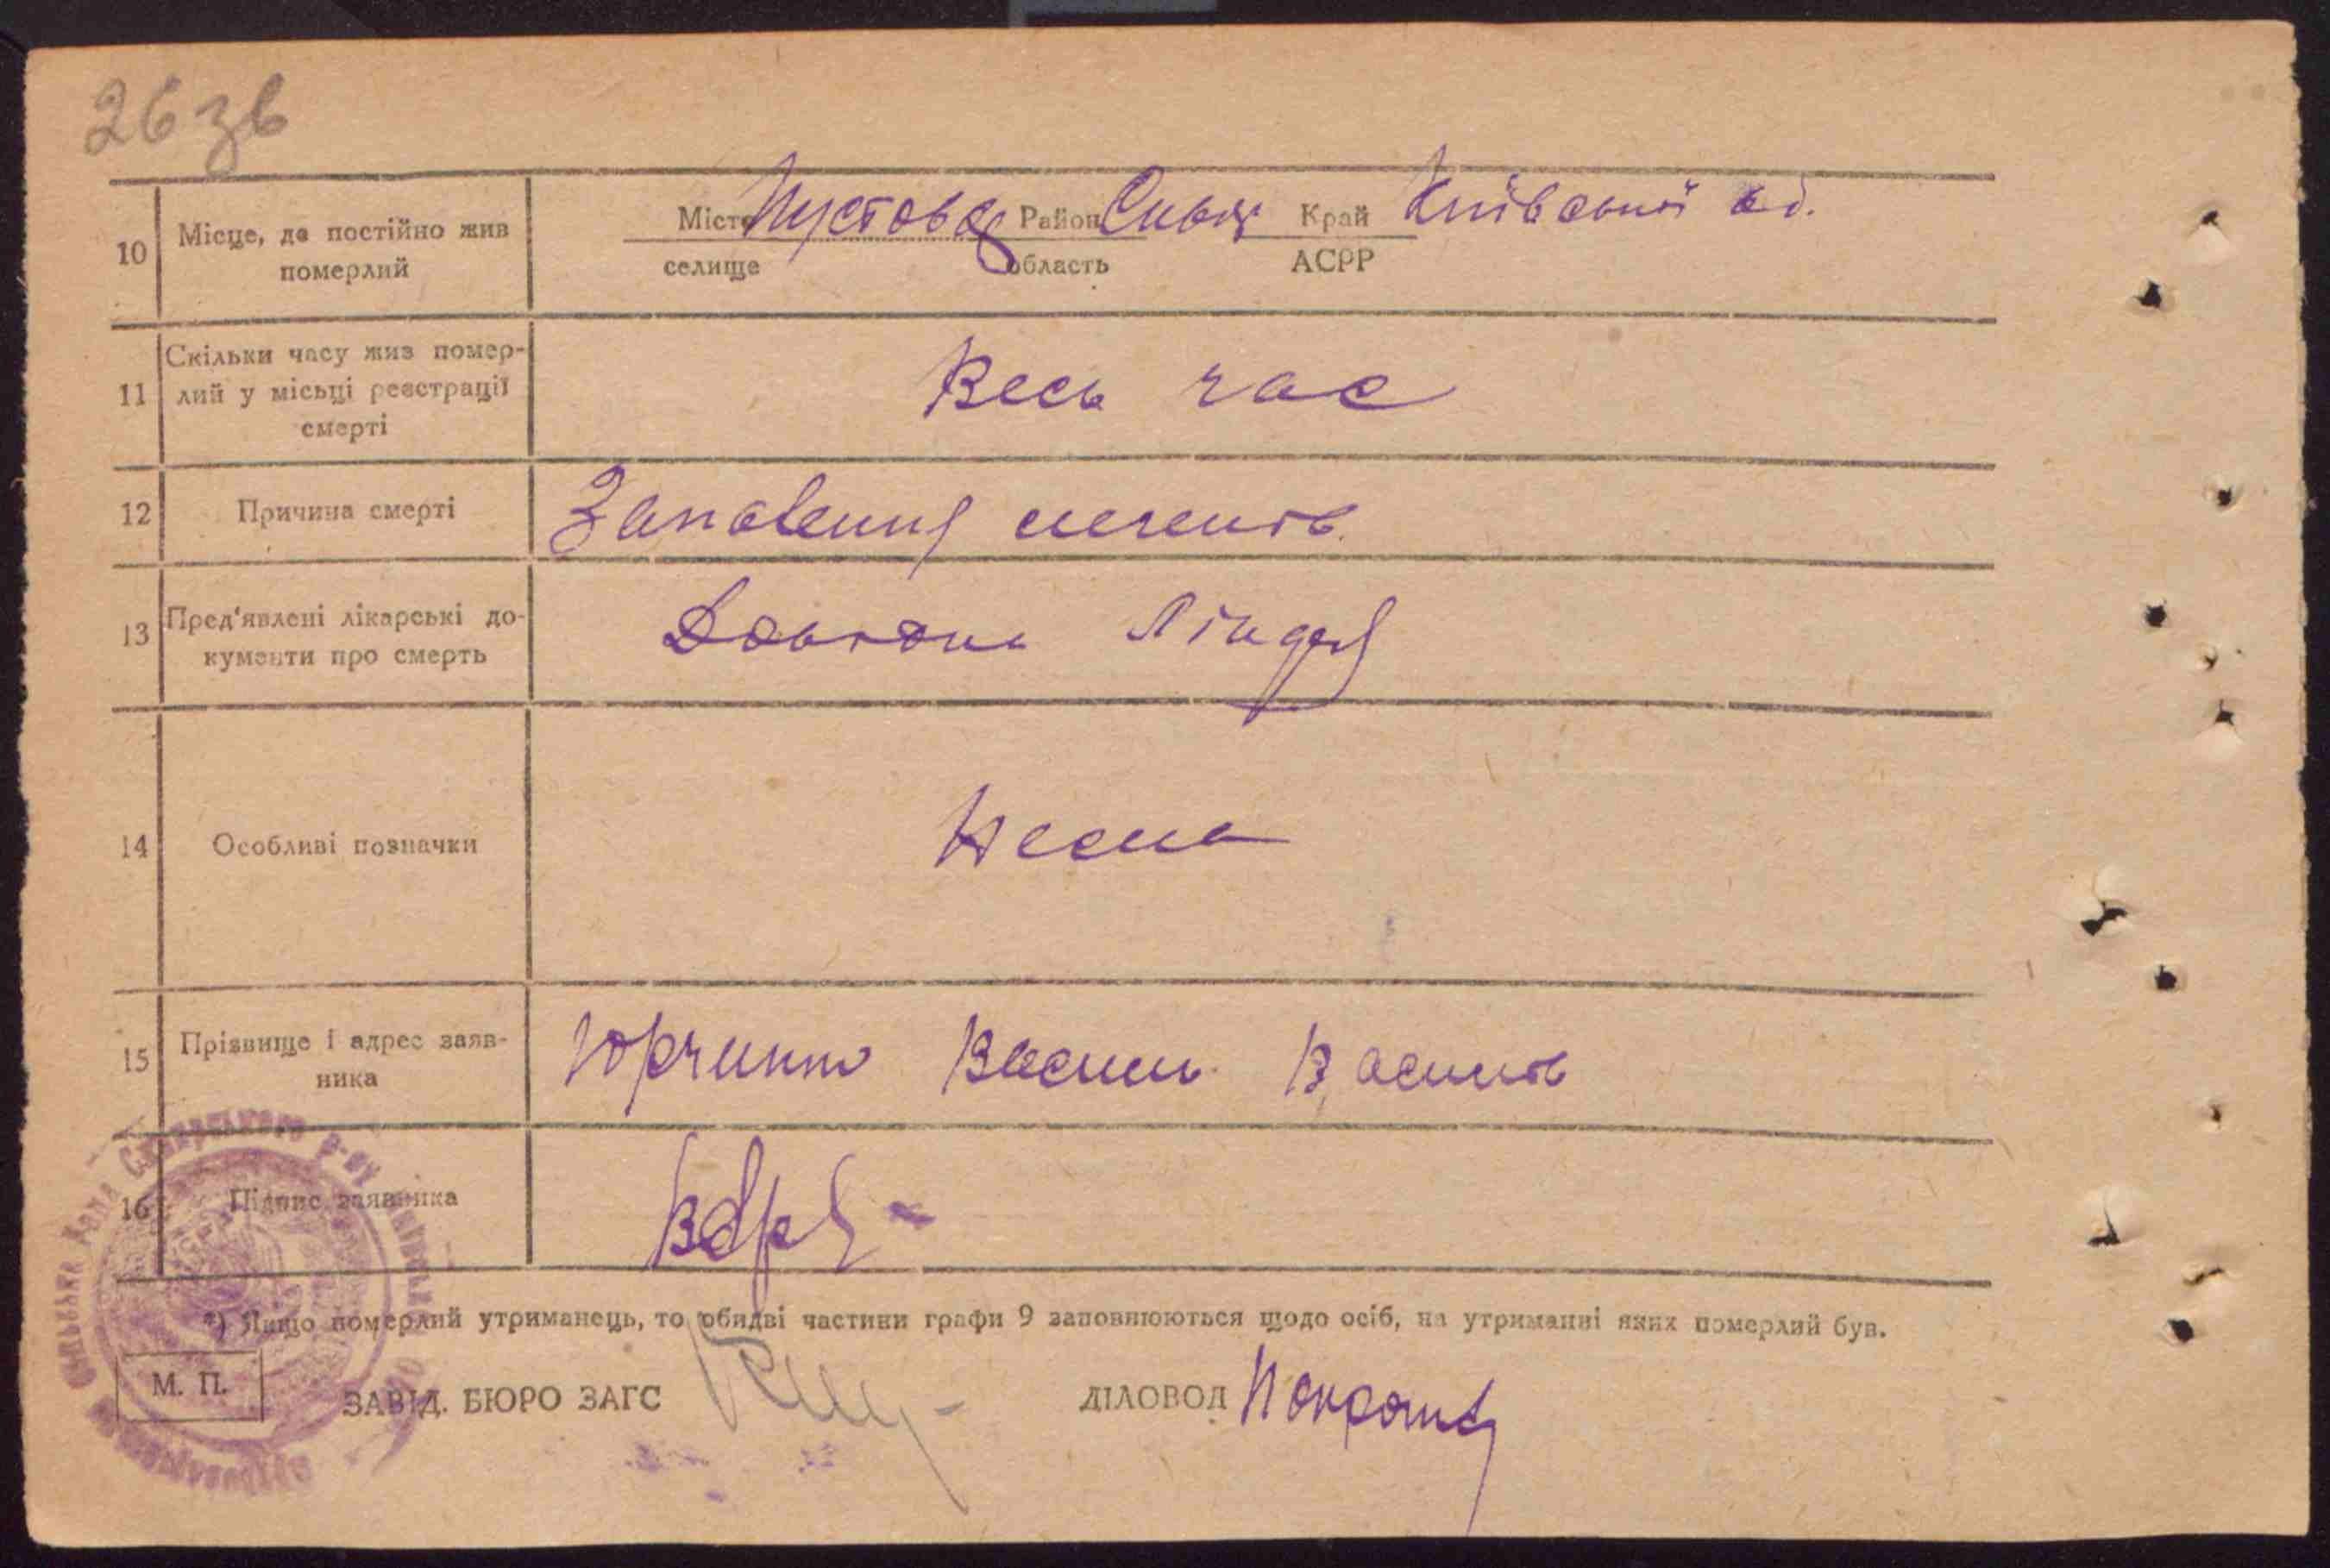 26 зв
10 Місце, де постійно жив померлий Місто Пустовар Район Сквир Край Київської об.
селище область АСРР
11 Скільки часу жив помер-
лий у місьці реєстрації
смерті
Весь час
12 Причина смерті Запалення легенів.
13 Пред'явлені лікарські до-
кументи про смерть
14 Особливі позначки Нема
15 Прізвище і адрес заяв-
ника
Юрчишин Василь Василів
16 Підпис заявника
*) Якщо померлий утриманець, то обидві частини графи 9 заповнюються щодо осіб, на утриманні яких померлий був.
М. П. ЗАВІД. БЮРО ЗАГС ДІЛОВОД